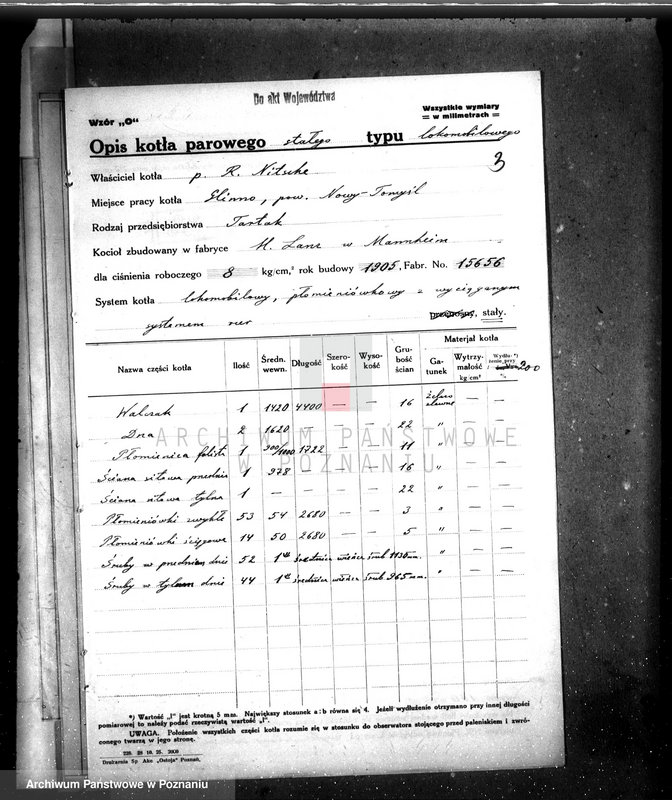 Do akt Województwa
Wzór „O"
Wszystkie wymiary
= w milimetrach =
Opis kotła parowego stałego typu lokomobilowego
3
Właściciel kotła p. R. Nitsche
Miejsce pracy kotła Glinno, pow. Nowy-Tomyśl
Rodzaj przedsiębiorstwa Tartak
Kocioł zbudowany w fabryce H. Lanz w Mannheim
dla ciśnienia roboczego 8 kg/cm,² rok budowy 1905, Fabr. No. 15656
System kotła lokomobilowy, płomieniówkowy z wyciąganym
systemem rur
przenośny, stały.
Nazwa części kotła Ilość Średn. wewn. Długość Szerokość Wysokość Grubość ścian Materjał kotła Gatunek Wytrzymałość kg/cm² Wydłużenie przy 200 %
Walczak 1 1420 4400 — — 16 żelazo zlewne — —
Dna 2 1620 — — 22 " — —
Płomienica falista 1 900/1000 1722 — — 11 " — —
Ściana sitowa przednia 1 978 — — 16 " — —
Ściana sitowa tylna 1 — — — — 22 " — —
Płomieniówki zwykłe 53 54 2680 — — 3 " — —
Płomieniówki ściągowe 14 50 2680 — — 5 " — —
Śruby w przednim dnie 52 1" średnica wieńca śrub 1130 mm. " — —
Śruby w tylnem dnie 44 1" średnica wieńca śrub 965 mm. " — —
*) Wartość „l" jest krotną 5 mm. Największy stosunek a:b równa się 4. Jeżeli wydłużenie otrzymano przy innej długości
pomiarowej to należy podać rzeczywistą wartość „l".
UWAGA. Położenie wszystkich części kotła rozumie się w stosunku do obserwatora stojącego przed paleniskiem i zwró-
conego twarzą w jego stronę.
228. 28 10. 25. 2000
Drukarnia Sp Akc „Ostoja" Poznań,
ARCHIWUM PAŃSTWOWE
W POZNANIU
Archiwum Państwowe w Poznaniu